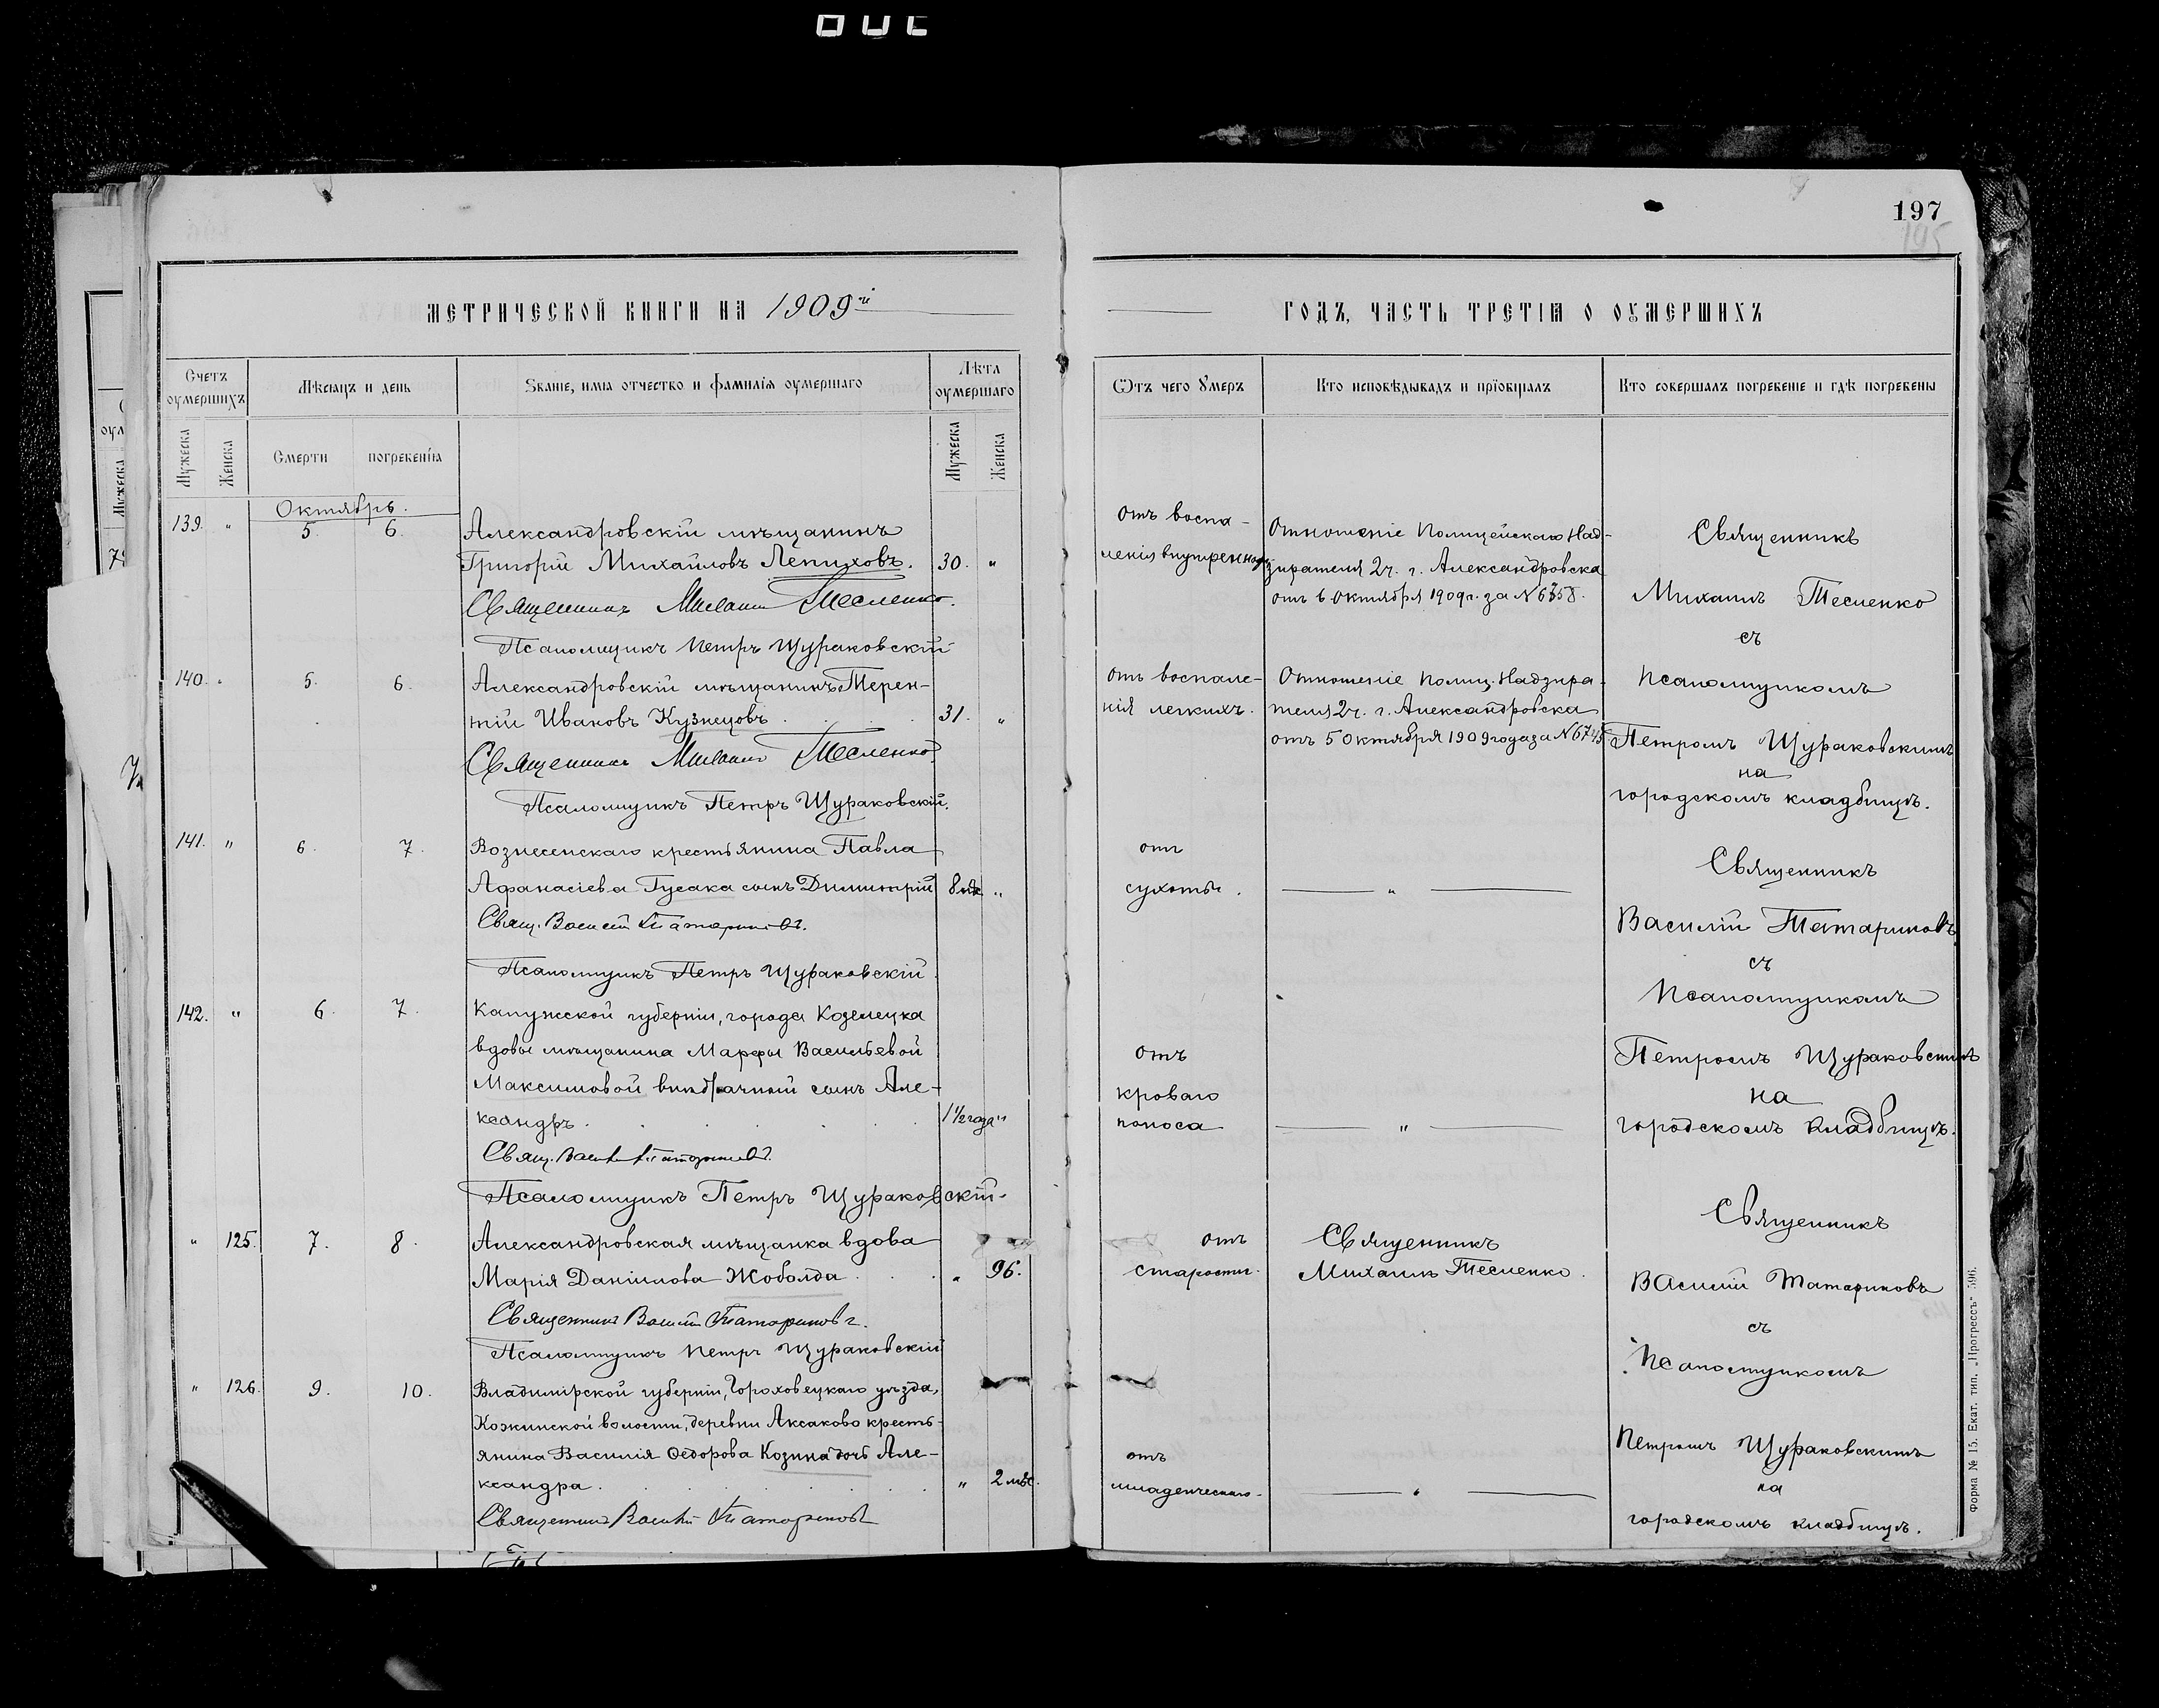 197
195
МЕТРИЧЕСКОЙ КНИГИ НА 1909й
ГОДЪ, ЧАСТЬ ТРЕТІЯ О ОУМЕРШИХЪ
Счетъ оумершихъ
Мѣсяцъ и день
Званіе, имя отчество и фамилія оумершаго
Лѣта оумершаго
Мужеска
Женска
Смерти
погребенія
Мужеска
Женска
Ѿтъ чего Умеръ
Кто исповѣдывалъ и пріобщалъ
Кто совершалъ погребеніе и гдѣ погребены
Октябрь.
139. " 5. 6.
Александровскій мѣщанинъ
Григорій Михайловъ Лепиховъ. 30. "
Священникъ Михаилъ Тесленко.
Псаломщикъ Петръ Щураковскій
140. " 5. 6.
Александровскій мѣщанинъ Терен-
тій Ивановъ Кузнецовъ 31. "
Священникъ Михаилъ Тесленко
Псаломщикъ Петръ Щураковскій.
141. " 6. 7.
Вознесенскаго крестьянина Павла
Афанасіева Гусака сынъ Димитрій 8 "
Свящ. Василій Татариновъ.
Псаломщикъ Петръ Щураковскій.
142. " 6. 7.
Калужской губерніи, города Козельска
вдовы мѣщанина Марфы Васильевой
Максимовой внѣбрачный сынъ Але-
ксандръ. 1½ года "
Свящ. Василій Татариновъ.
Псаломщикъ Петръ Щураковскій.
" 125. 7. 8.
Александровская мѣщанка вдова
Марія Даніилова Жоболда " 96.
Священникъ Василій Татариновъ.
Псаломщикъ Петръ Щураковскій
" 126. 9. 10.
Владимірской губерніи, Гороховецкаго уѣзда,
Кожинской волости, деревни Аксаково кресть-
янина Василія Ѳедорова Козина дочь Але-
ксандра. " 2 мѣс.
Священникъ Василій Татариновъ
отъ воспа-
ленія внутренно
Отношеніе Полицейскаго Над-
зирателя 2ч. г. Александровска
отъ 6 Октября 1909г. за №
Священникъ
Михаилъ Тесленко
съ
Псаломщикомъ
Петромъ Щураковскимъ
на
городскомъ кладбищѣ.
отъ воспале-
нія легкихъ.
Отношеніе Полиц. Надзира-
теля 2ч. г. Александровска
отъ 5 Октября 1909 года за №
отъ
сухоты.
"
Священникъ
Василій Татариновъ
съ
Псаломщикомъ
Петромъ Щураковскимъ
на
городскомъ кладбищѣ.
отъ
кроваго
поноса
"
отъ
старости.
Священникъ
Михаилъ Тесленко.
Священникъ
Василій Татариновъ
съ
Псаломщикомъ
Петромъ Щураковскимъ
на
городскомъ кладбищѣ.
отъ
младенческаго
"
Форма № 15. Екат. тип. „Прогрессъ" 396.